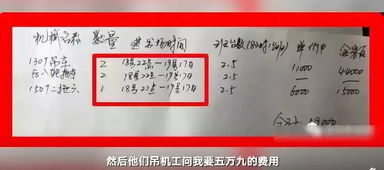 机械名称 数量 进出场时间 班台数(8小时/台班) 单价/元 金额/元
130T吊车 2 18号22点-19号17点 2.5 11000 44000
2 18号22点-19号17点 2.5
150T 1 18号22点-19号17点 2.5 6000 15000
然后他们吊机工问我要五万九的费用